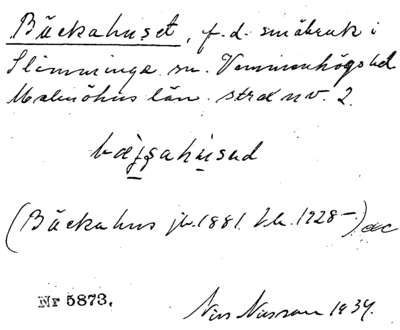 Bäckahuset, f.d. småbruk i
Slimminge sn. Vemmenhögs hd
Malmöhus län. strax nv. 2.
(Bäckahus jb. 1881. kb. 1928-)
Nr 5873. Nils Nilsson 1934.